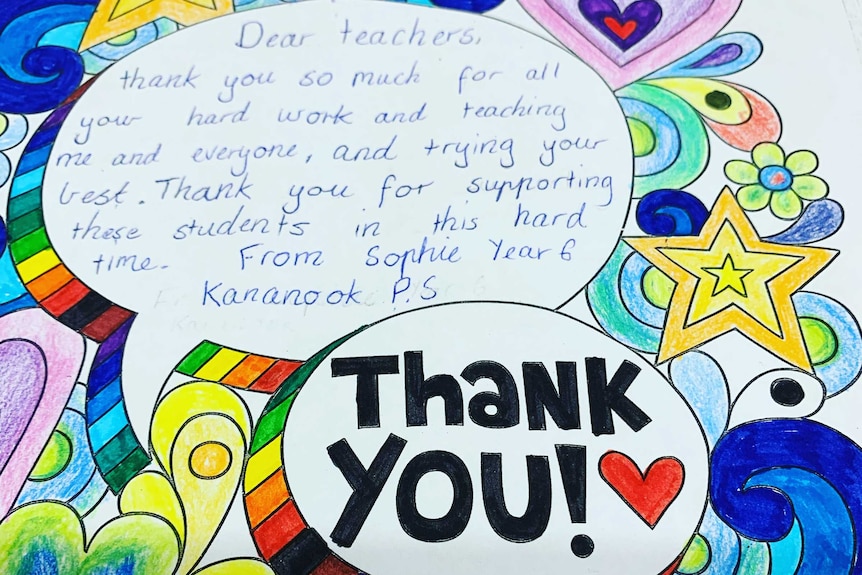 Dear teachers,
thank you so much for all
your hard work and teaching
me and everyone, and trying your
best. Thank you for supporting
these students in this hard
time. From Sophie Year 6
Kananook P.S
Thank
You!